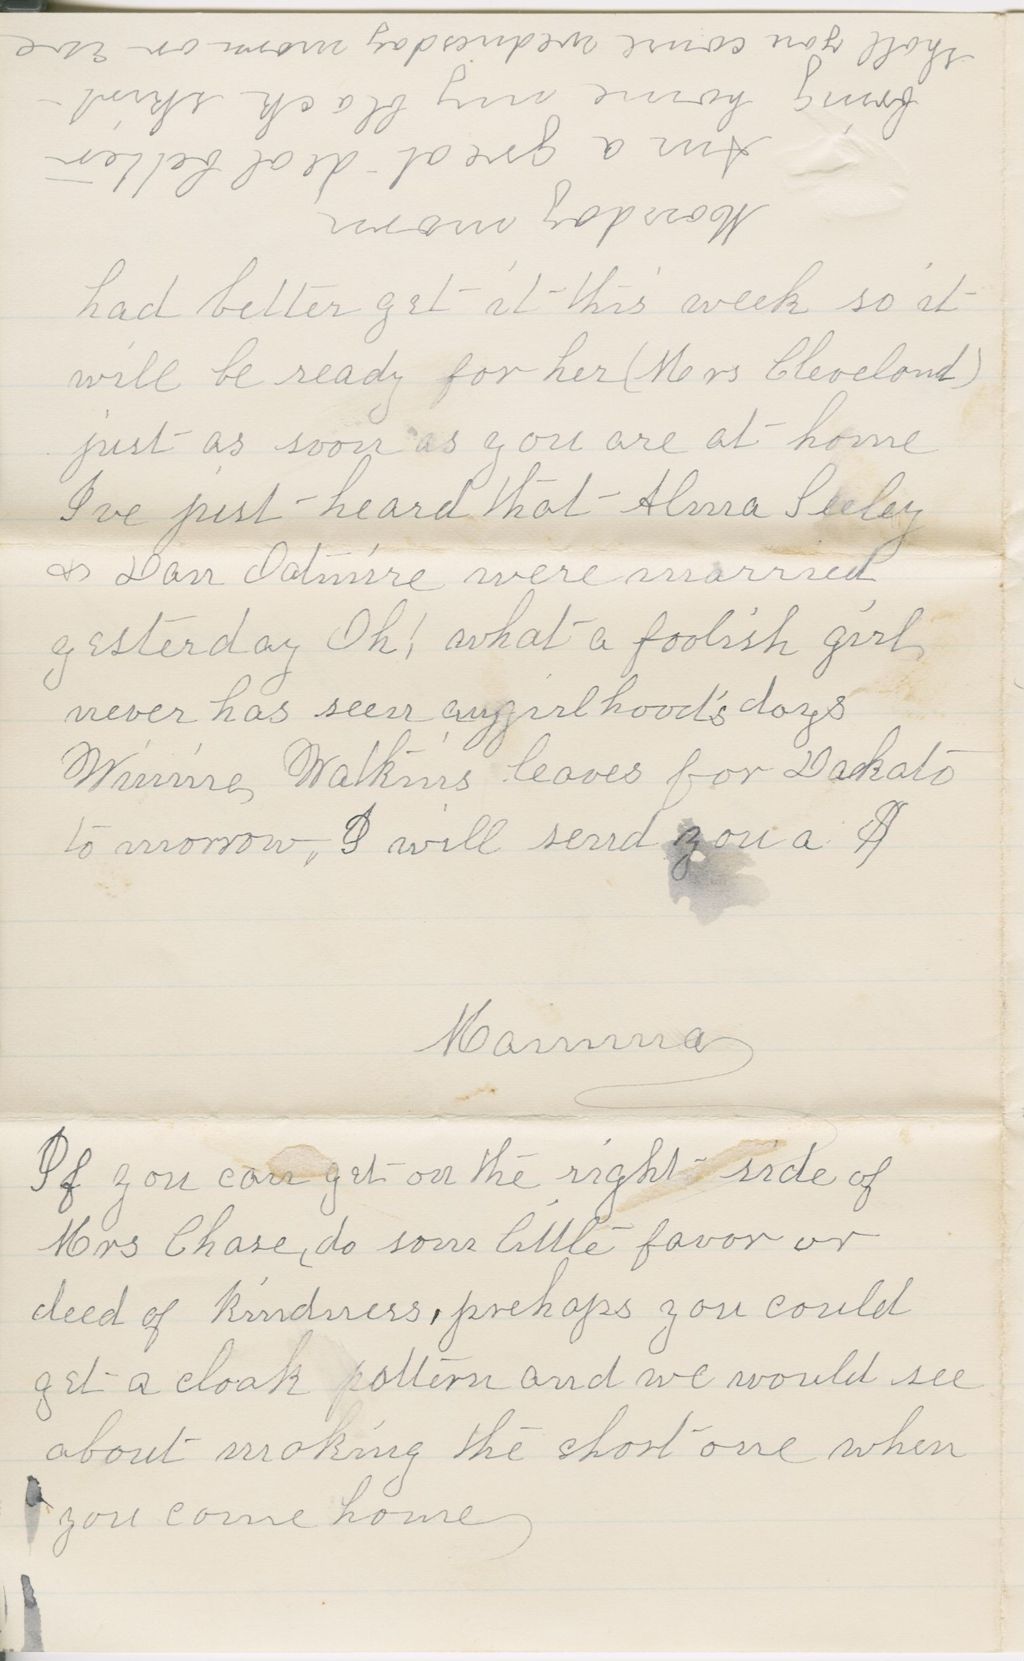 Monday morn
Am a great deal better
bring home my black skirt
shall you come wednesday morn or eve
had better get it this week so it
will be ready for her (Mrs Cleveland)
just as soon as you are at home
I've just heard that Alma Seeley
& Dan Odmire were married
yesterday Oh! what a foolish girl
never has seen any girlhood's days
Winnie Watkins leaves for Dackato
to morrow, I will send you a $
Mamma
If you can get on the right side of
Mrs Chase, do som little favor or
deed of kindness, prehaps you could
get a cloak pattern and we would see
about making the short one when
you come home